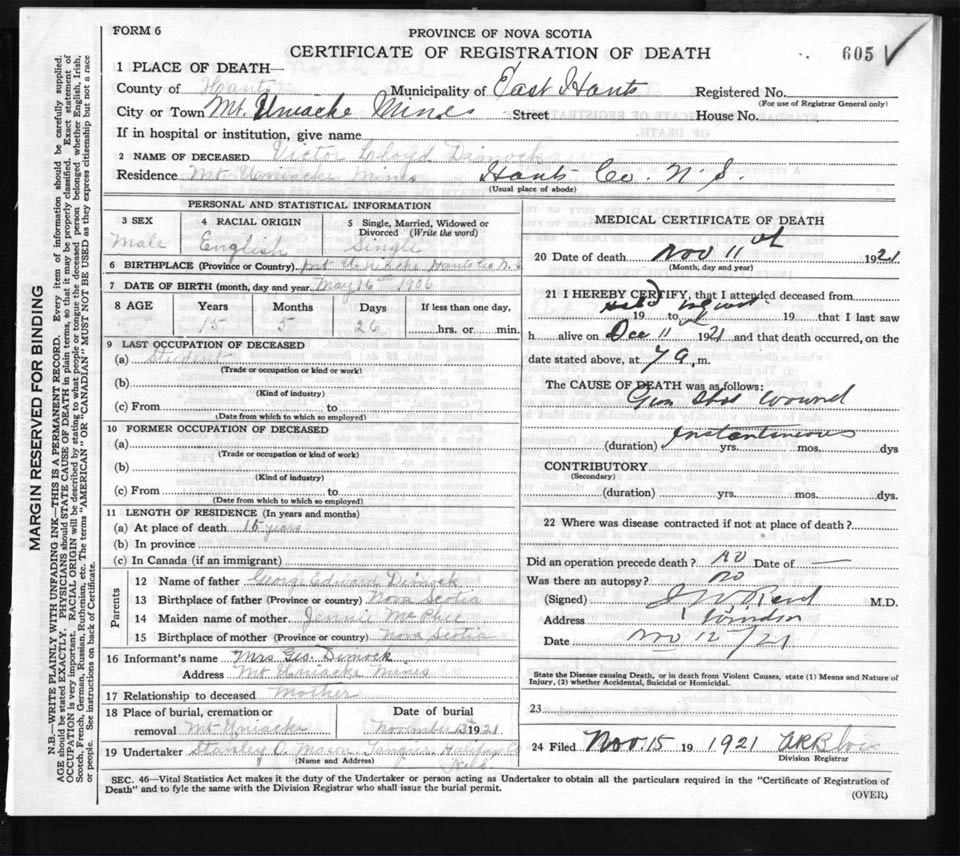 FORM 6
PROVINCE OF NOVA SCOTIA
CERTIFICATE OF REGISTRATION OF DEATH
605
1 PLACE OF DEATH—
County of Hants Municipality of East Hants Registered No.
(For use of Registrar General only)
City or Town Mt. Uniacke Mines Street House No.
If in hospital or institution, give name
2 NAME OF DECEASED Victor Lloyd Dimock
Residence Mt Uniacke Mines Hants Co. N. S.
(Usual place of abode)
PERSONAL AND STATISTICAL INFORMATION
3 SEX 4 RACIAL ORIGIN 5 Single, Married, Widowed or Divorced (Write the word)
Male English Single
6 BIRTHPLACE (Province or Country) Mt Uniacke Hants Co N. S
7 DATE OF BIRTH (month, day and year) May 16th 1906
8 AGE Years Months Days If less than one day,
15 5 26 hrs. or min.
9 LAST OCCUPATION OF DECEASED
(a) Student
(Trade or occupation or kind or work)
(b)
(Kind of industry)
(c) From to
(Date from which to which so employed)
10 FORMER OCCUPATION OF DECEASED
(a)
(Trade or occupation or kind of work)
(b)
(Kind of industry)
(c) From to
(Date from which to which so employed)
11 LENGTH OF RESIDENCE (In years and months)
(a) At place of death 15 years
(b) In province
(c) In Canada (if an immigrant)
Parents
12 Name of father George Edward Dimock
13 Birthplace of father (Province or country) Nova Scotia
14 Maiden name of mother Jennie McPhee
15 Birthplace of mother (Province or country) Nova Scotia
16 Informant's name Mrs Geo. Dimock
Address Mt Uniacke Mines
17 Relationship to deceased Mother
18 Place of burial, cremation or removal Mt Uniacke Date of burial November 13th 1921
19 Undertaker Stanley O. Mason Tangier Halifax Co
(Name and Address) N. S.
MEDICAL CERTIFICATE OF DEATH
20 Date of death Nov 11th 1921
(Month, day and year)
21 I HEREBY CERTIFY, that I attended deceased from
19 to 19 that I last saw
h alive on Dec 11 1921 and that death occurred, on the
date stated above, at 7 a. m.
The CAUSE OF DEATH was as follows:
Gun Shot Wound
Instantinious
(duration) yrs. mos. dys
CONTRIBUTORY
(Secondary)
(duration) yrs. mos. dys.
22 Where was disease contracted if not at place of death?
Did an operation precede death? no Date of —
Was there an autopsy? no
(Signed) J W Reid M.D.
Address Windsor
Date Nov 12/21
State the Disease causing Death, or in death from Violent Causes, state (1) Means and Nature of Injury, (2) whether Accidental, Suicidal or Homicidal.
23
24 Filed Nov. 15 19 1921 A R Blois
Division Registrar
SEC. 46—Vital Statistics Act makes it the duty of the Undertaker or person acting as Undertaker to obtain all the particulars required in the "Certificate of Registration of
Death" and to fyle the same with the Division Registrar who shall issue the burial permit.
(OVER)
MARGIN RESERVED FOR BINDING
N.B.—WRITE PLAINLY WITH UNFADING INK—THIS IS A PERMANENT RECORD. Every item of information should be carefully supplied.
AGE should be stated EXACTLY. PHYSICIANS should STATE CAUSE OF DEATH in plain terms, so that it may be properly classified. Exact statement of
OCCUPATION is very important. RACIAL ORIGIN will be described by stating to what people or tongue the deceased person belonged whether English, Irish,
Scotch, French, German, Russian, Ruthenian, etc. The terms "AMERICAN" OR "CANADIAN" MUST NOT BE USED as they express citizenship but not a race
or people. See instructions on back of Certificate.